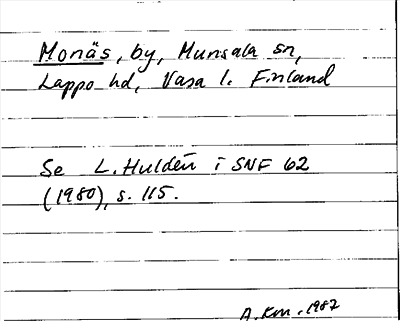 Monäs, by, Munsala sn,
Lappo hd, Vasa l. Finland
Se L. Huldén i SNF 62
(1980), s. 115.
A. Km. 1987